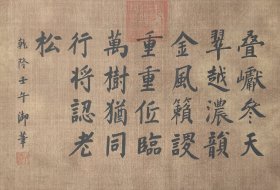 叠巘参天
翠越浓韻
金風籟謖
重重位臨
萬樹猶同
行将認老
松
乾隆壬午御筆